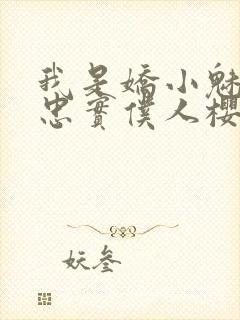 我是嬌小魅
忠實僕人櫻
妖叄